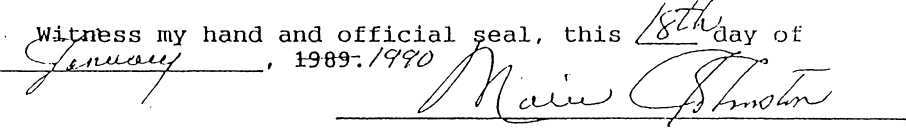 Witness my hand and official seal, this 18th day of
January, 1989. 1990
Marie Johnston